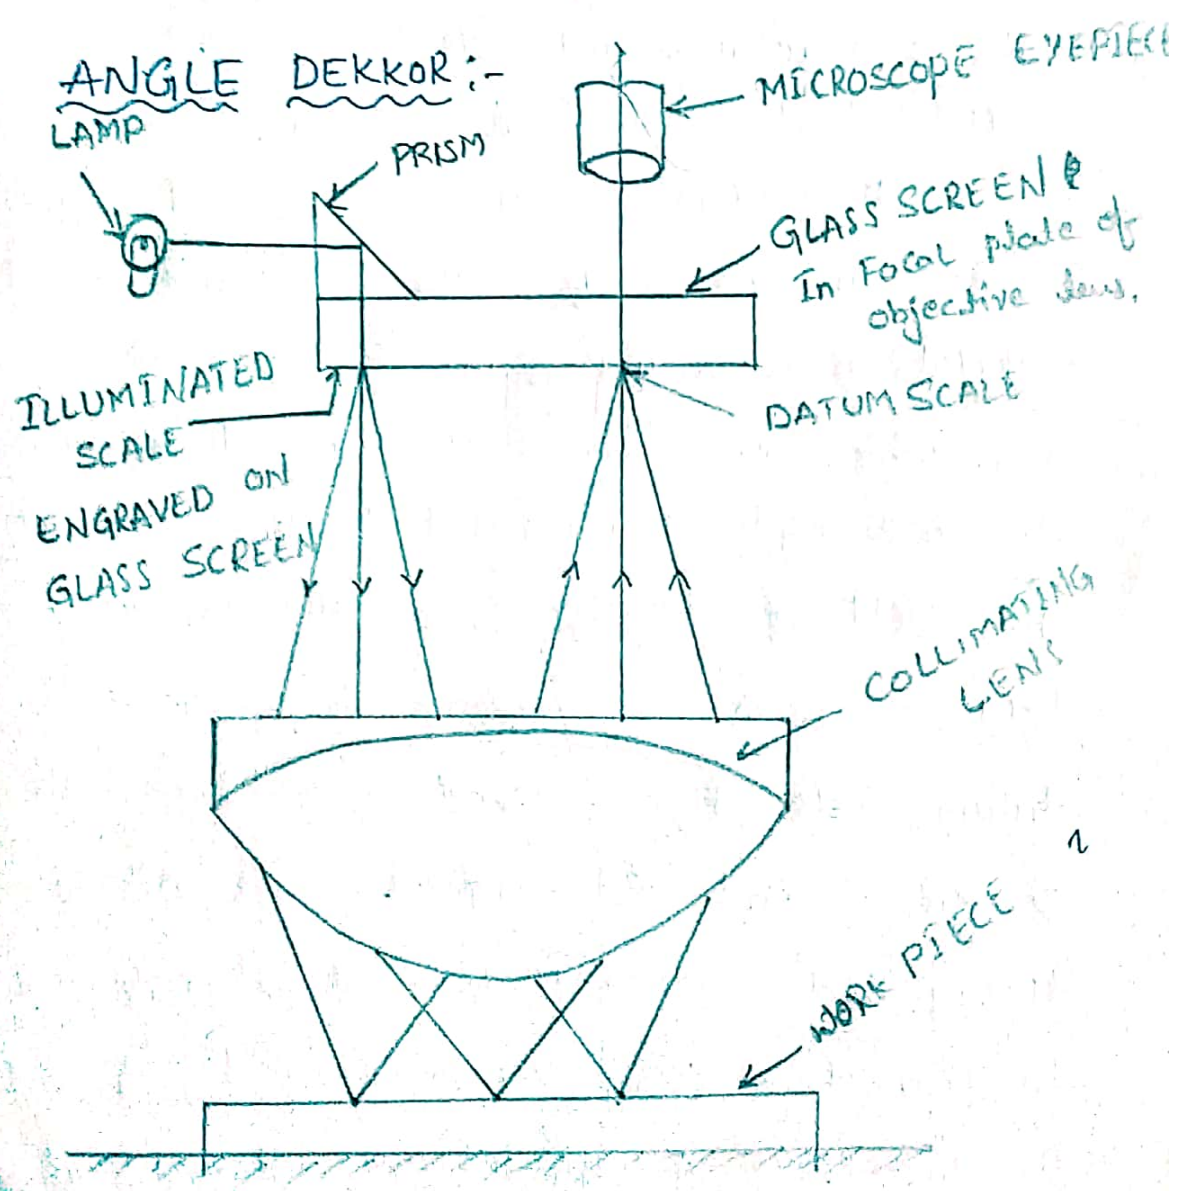 ANGLE DEKKOR :-
LAMP
PRISM
MICROSCOPE EYEPIECE
GLASS SCREEN
In Focal plate of
objective lens.
ILLUMINATED
SCALE
ENGRAVED ON
GLASS SCREEN
DATUM SCALE
COLLIMATING
LENS
WORK PIECE